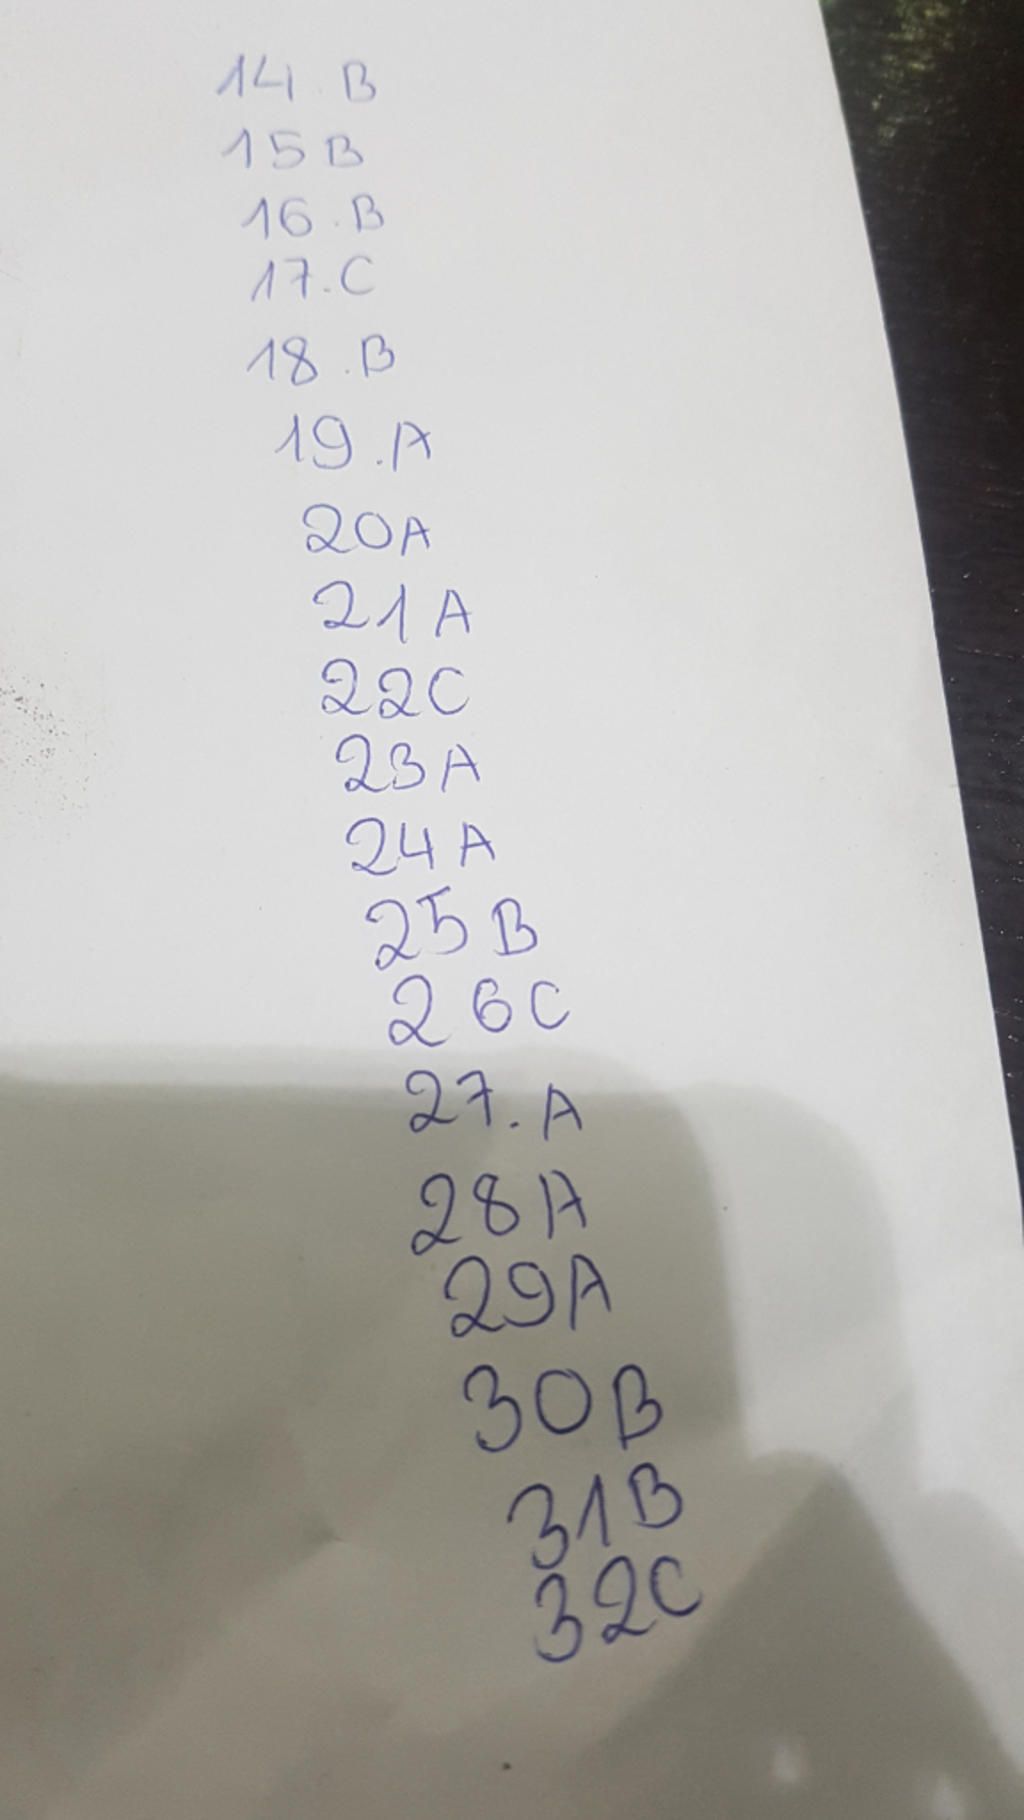 14. B
15 B
16. B
17. C
18. B
19. A
20 A
21 A
22 C
23 A
24 A
25 B
26 C
27. A
28 A
29 A
30 B
31 B
32 C